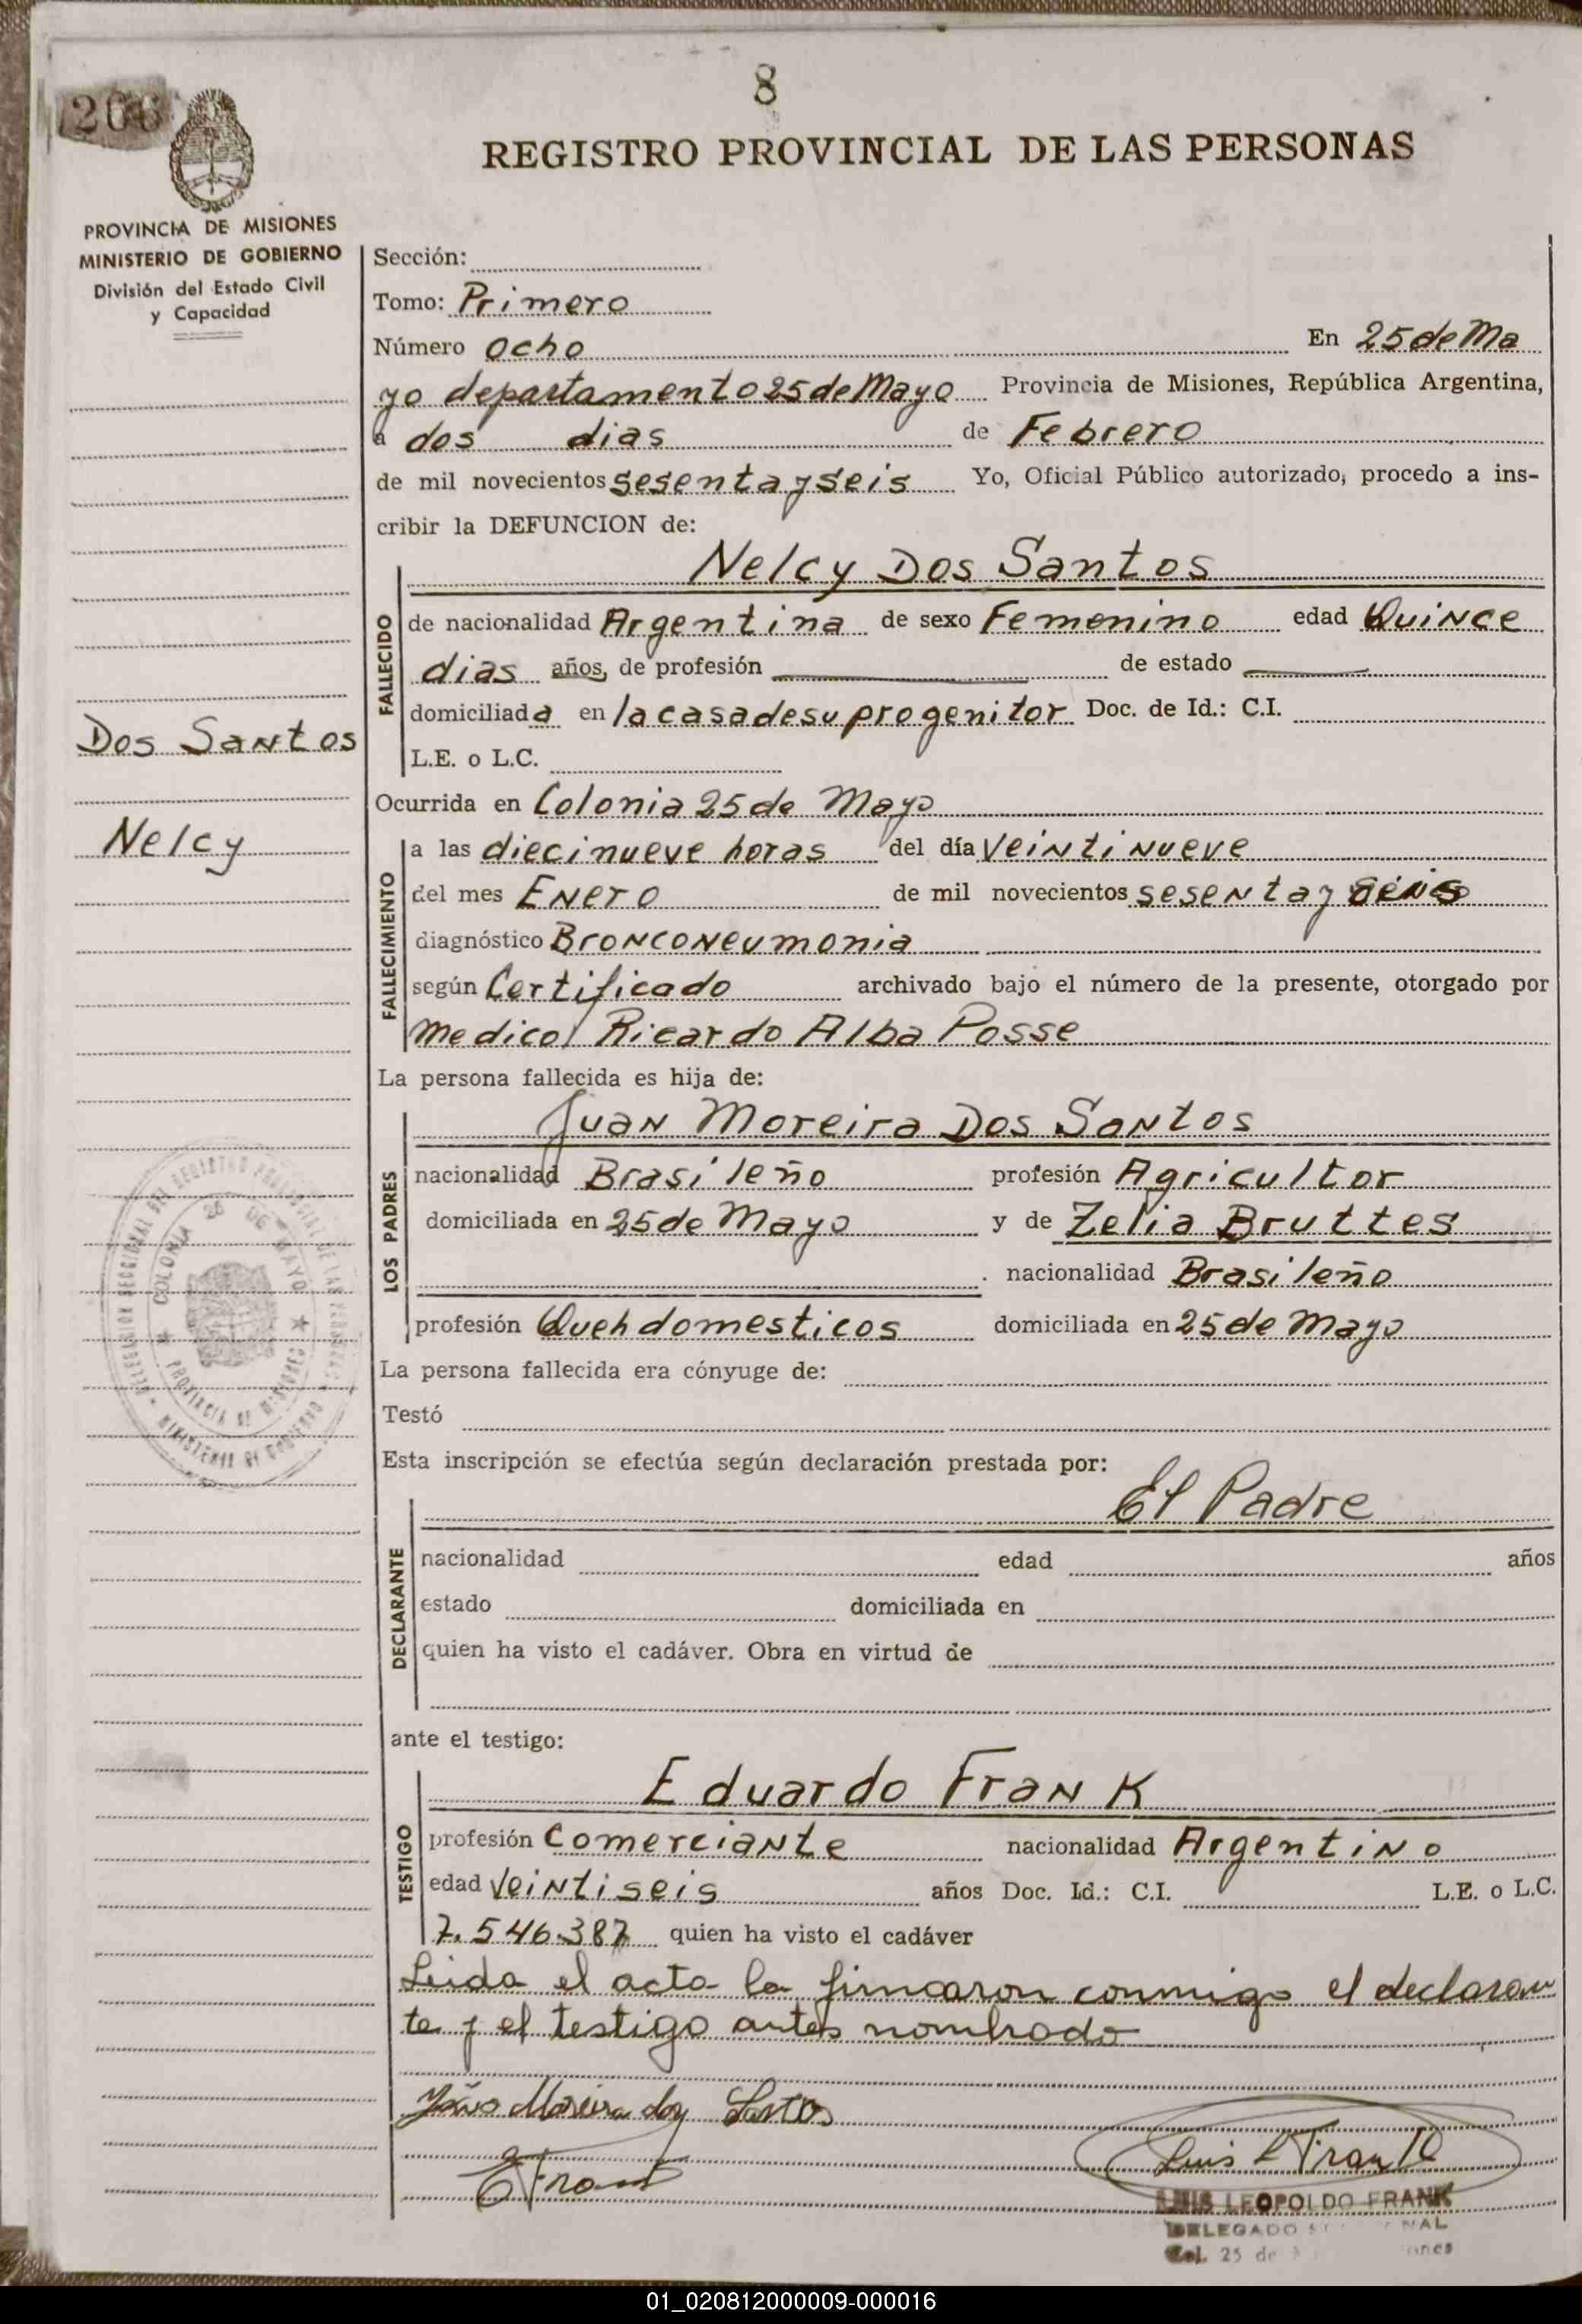 266
8
REGISTRO PROVINCIAL DE LAS PERSONAS
PROVINCIA DE MISIONES
MINISTERIO DE GOBIERNO
División del Estado Civil
y Capacidad
Dos Santos
Nelcy
Sección:
Tomo: Primero
Número ocho En 25 de Ma
yo departamento 25 de Mayo Provincia de Misiones, República Argentina,
a dos dias de Febrero
de mil novecientos sesenta y seis Yo, Oficial Público autorizado, procedo a ins-
cribir la DEFUNCION de:
Nelcy Dos Santos
FALLECIDO
de nacionalidad Argentina de sexo Femenino edad Quince
dias años, de profesión de estado
domiciliada en la casa de su progenitor Doc. de Id.: C.I.
L.E. o L.C.
Ocurrida en Colonia 25 de Mayo
FALLECIMIENTO
a las diecinueve horas del día veintinueve
del mes Enero de mil novecientos sesenta y seis
diagnóstico Bronconeumonia
según Certificado archivado bajo el número de la presente, otorgado por
medico Ricardo Alba Posse
La persona fallecida es hija de:
LOS PADRES
Juan Moreira Dos Santos
nacionalidad Brasileño profesión Agricultor
domiciliada en 25 de Mayo y de Zelia Bruttes
nacionalidad Brasileño
profesión Queh domesticos domiciliada en 25 de Mayo
La persona fallecida era cónyuge de:
Testó
Esta inscripción se efectúa según declaración prestada por:
El Padre
DECLARANTE
nacionalidad edad años
estado domiciliada en
quien ha visto el cadáver. Obra en virtud de
ante el testigo:
Eduardo Frank
TESTIGO
profesión Comerciante nacionalidad Argentino
edad veintiseis años Doc. Id.: C.I. L.E. o L.C.
7.546.387 quien ha visto el cadáver
Leida el acta la firmaron conmigo el declaran
te y el testigo antes nombrado
Moreira dos Santos
E Frank
Luis L Frank
LUIS LEOPOLDO FRANK
DELEGADO
Col. 25 de
COLONIA 25 DE MAYO
PROVINCIA DE MISIONES
MINISTERIO DE GOBIERNO
DELEGACION SECCIONAL DEL REGISTRO PROVINCIAL DE LAS PERSONAS
01_020812000009-000016